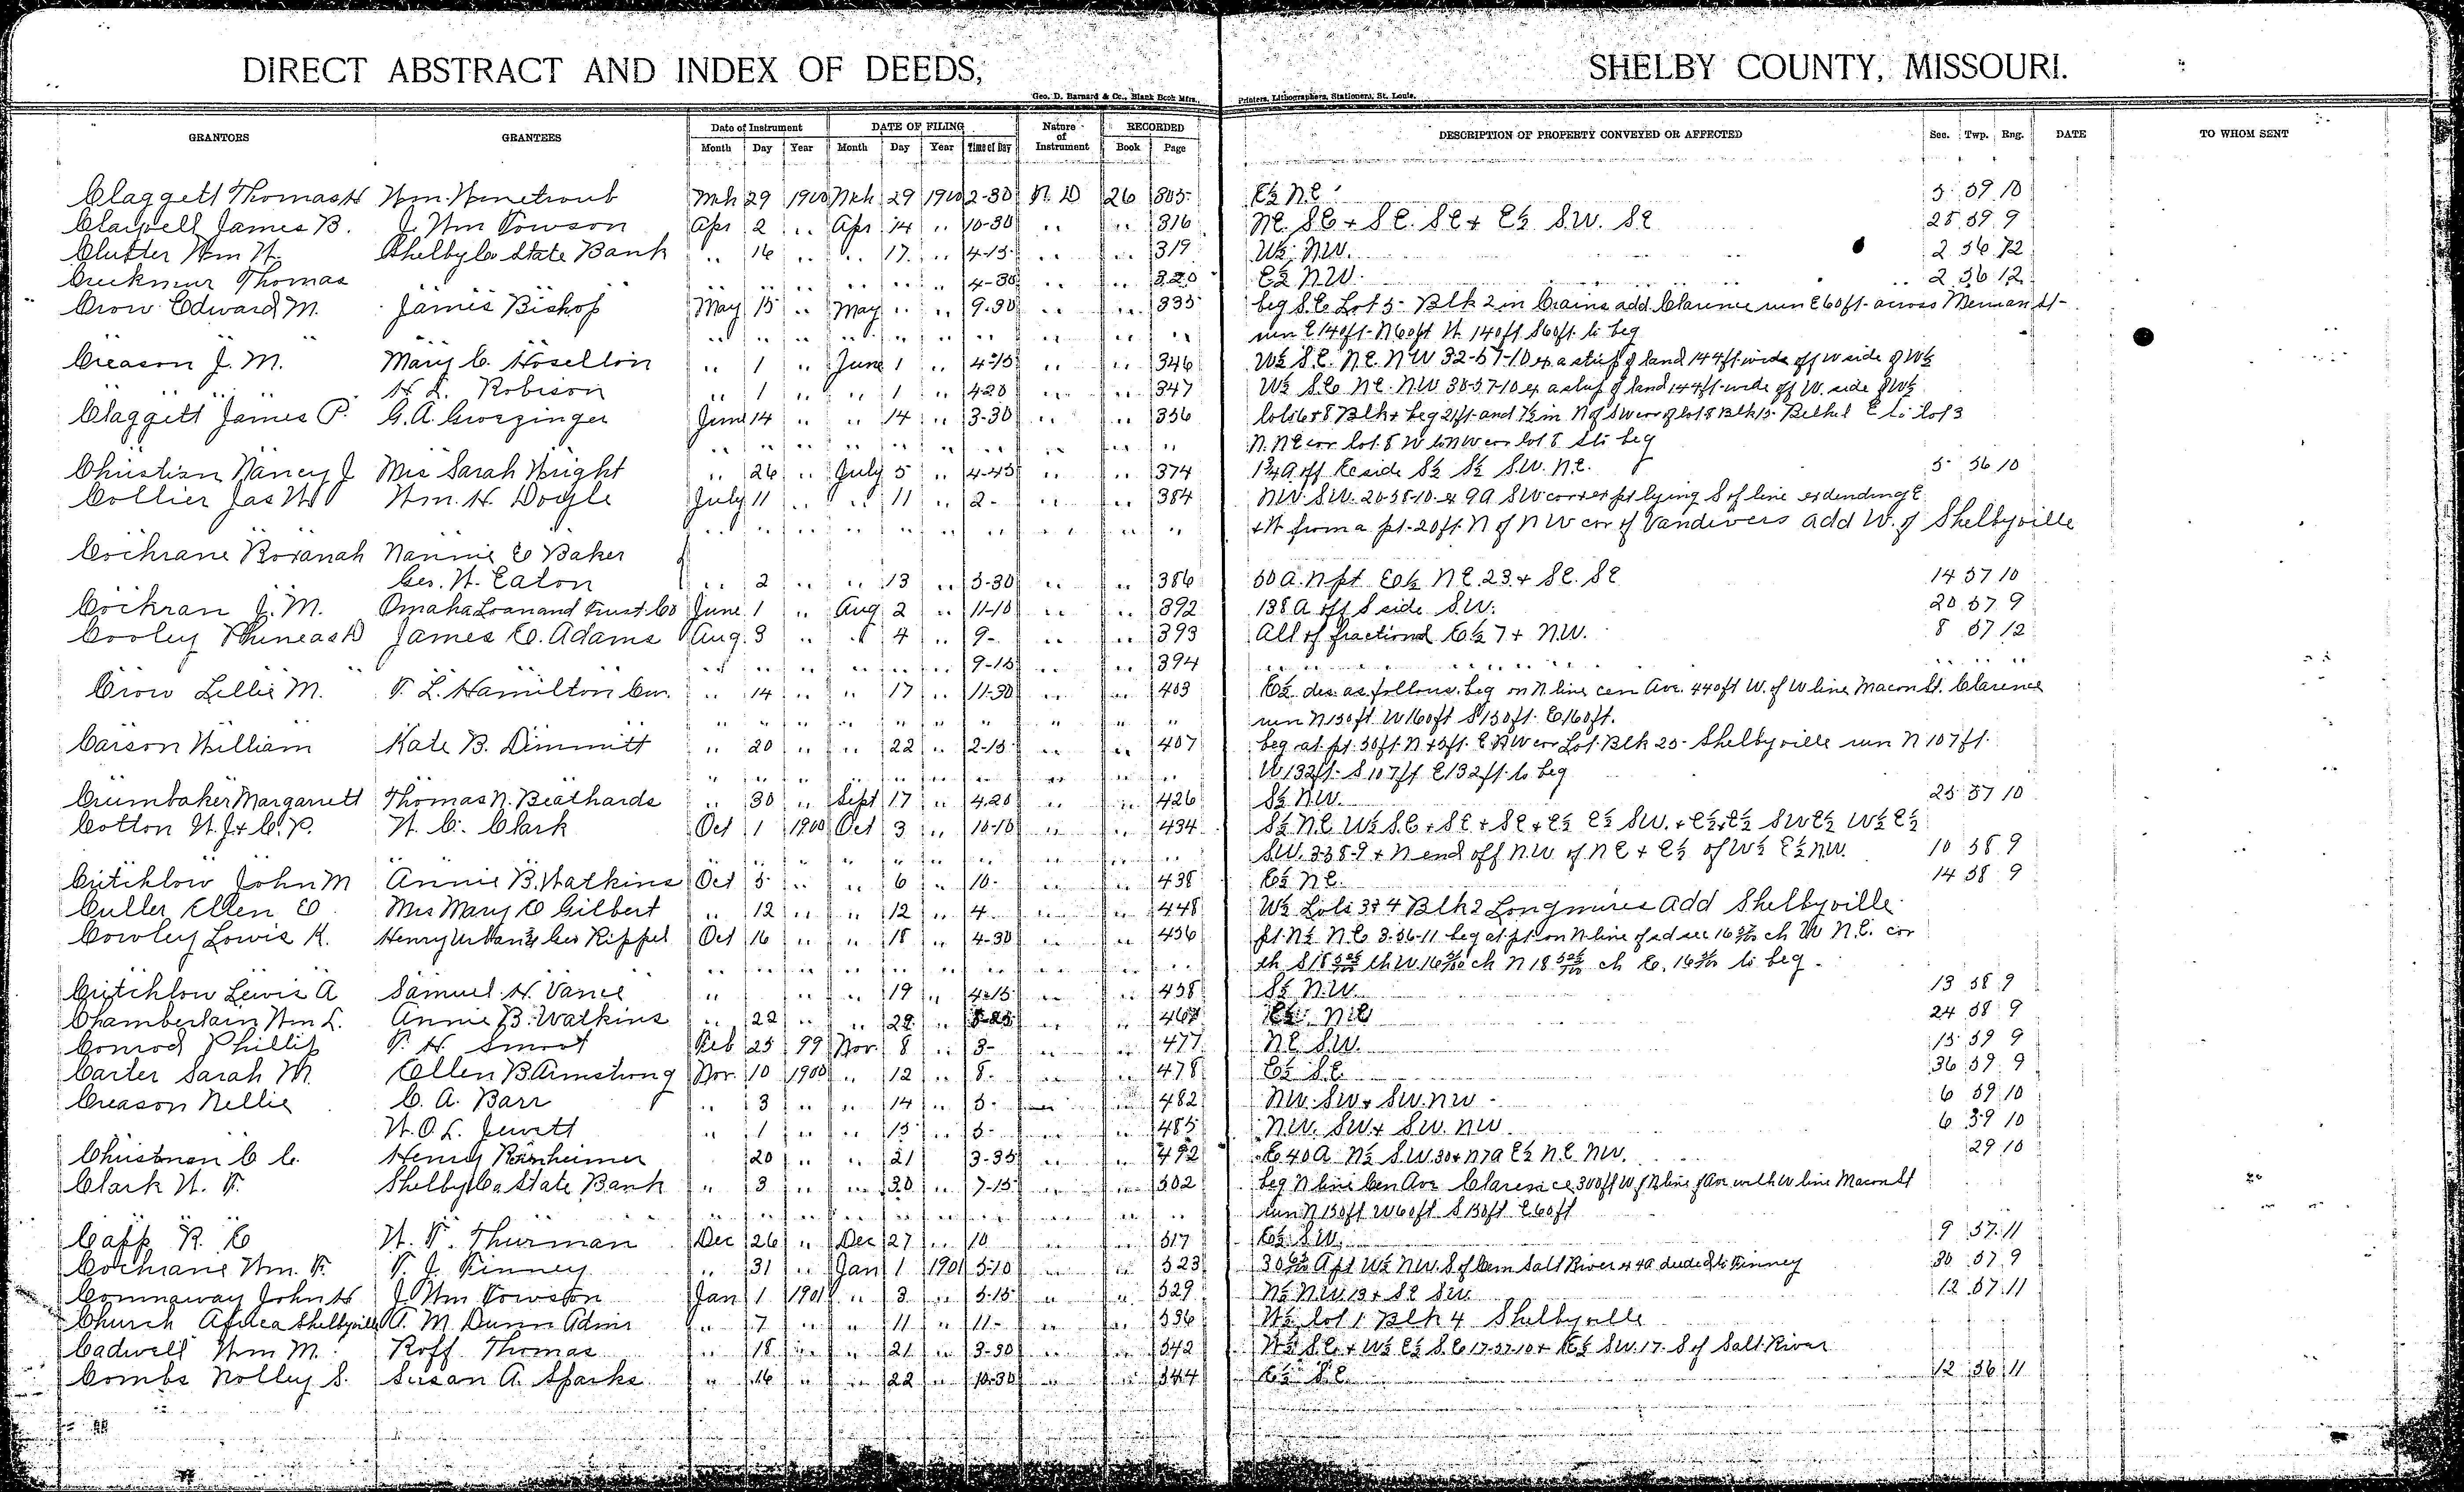 DIRECT ABSTRACT AND INDEX OF DEEDS, SHELBY COUNTY, MISSOURI.
Geo. D. Barnard & Co., Blank Book Mfrs., Printers, Lithographers, Stationers, St. Louis.
GRANTORS GRANTEES Date of Instrument DATE OF FILING Nature of Instrument RECORDED DESCRIPTION OF PROPERTY CONVEYED OR AFFECTED Sec. Twp. Rng. DATE TO WHOM SENT
Month Day Year Month Day Year Time of Day Book Page
Claggett Thomas H Wm. Mch 29 1900 Mch 29 1900 2-30 26 305 E½ NE 59 10
James B. J. Wm Towson Apr 2 .. Apr 14 .. 10-30 .. .. 316 NE. SE + SE. SE + E½ S.W. SE 25 59 9
Wm H. Shelby Co State Bank .. 16 .. .. 17 .. 4-15 .. .. 319 W½ NW. 2 56 12
Creekmur Thomas .. .. .. .. .. .. 4-30 .. .. 320 E½ NW. 2 56 12
Crow Edward M. James Bishop May 15 .. May .. .. 9-30 .. .. 335 beg S.E Lot 5 Blk 2 in Crains add Clarence run E 60ft. across St
.. .. .. .. .. .. .. .. .. .. run E 140ft N 60ft W 140ft S 60ft to beg
Creason J. M. Mary C. Hoselton .. 1 .. June 1 .. 4-15 .. .. 346 W½ S.E. N.E. NW 32-57-10 ex a strip of land 144ft wide off W side of W½
.. .. .. H. L. Robison .. 1 .. .. 1 .. 4-20 .. .. 347 W½ S.E NE. NW 57-10 ex a strip of land 144ft wide off W. side of W½
Claggett James P. G. A. Growzinger June 14 .. .. 14 .. 3-30 .. .. 356 lots 6+8 Blk 4 beg 21ft and 7½ in N of SW cor of lot 8 Blk 15 Bethel E to lot 3
.. .. .. .. .. .. .. .. .. .. N. NE cor lot 8 W to NW cor lot 8 S to beg
Christian Nancy J Mrs Sarah Wright .. 26 .. July 5 .. 4-45 .. .. 374 off E side S½ S½ S.W. N.E. 5 56 10
Collier Jas W Wm. H. Doyle July 11 .. .. 11 .. 2- .. .. 384 NW. S.W. 20-58-10 ex 9A SW cor + ex pt lying S of line extending E
.. .. .. .. .. .. .. .. .. .. + W from a pt. 20ft. N of NW cor of Vandivers add W. of Shelbyville
Cochrane Roxanah Nannie E Baker
Geo. W. Eaton .. 2 .. .. 13 .. 5-30 .. .. 386 50 A. N pt E½ NE. 23 + SE. SE 14 57 10
Cochran J. M. Omaha Loan and Trust Co June 1 .. Aug 2 .. 11-10 .. .. 392 138 A off S side S.W. 20 57 9
Cooley Phineas D James E. Adams Aug. 3 .. .. 4 .. 9- .. .. 393 All of fractional E½ 7 + N.W. 8 57 12
.. .. .. .. .. .. 9-15 .. .. 394 .. .. .. .. .. ..
Crow Lillie M. T. L. Hamilton Cur. .. 14 .. .. 17 .. 11-30 .. .. 403 E½ des. as follows, beg on N line cen Ave. 440ft W. of W line Macon St. Clarence
.. .. .. .. .. .. .. .. .. .. run N 150ft W 160ft S 150ft. E 160ft.
Carson William Kate B. Dimmitt .. 20 .. .. 22 .. 2-15 .. .. 407 beg at pt. 30ft. N + 5ft. E NW cor Lot Blk 25 Shelbyville run N 107ft.
.. .. .. .. .. .. .. .. .. .. W 132ft. S 107ft E 132ft. to beg
Crumbaker Margarrett Thomas N. Beathards .. 30 .. Sept 17 .. 4-20 .. .. 426 S½ N.W. 25 57 10
Cotton W. J + C. P. W. C. Clark Oct 1 1900 Oct 3 .. 10-10 .. .. 434 S½ N.E W½ S.E + SE + SE + E½ E½ SW. + E½ E½ SW E½ W½ E½
.. .. .. .. .. .. .. .. .. .. S.W. 3-58-9 + N end off N.W. of N E + E½ of W½ E½ N.W. 10 58 9
Critchlow John M Annie B. Watkins Oct 5 .. .. 6 .. 10- .. .. 438 E½ NE. 14 58 9
Culler Ellen E Mrs Mary E Gilbert .. 12 .. .. 12 .. 4 .. .. 448 W½ Lots 3+4 Blk 2 Longmires Add Shelbyville
Cowley Lowis K. Henry Urban & Geo Rippel Oct 16 .. .. 18 .. 4-30 .. .. 456 pt. N½ N.E 3-56-11 beg at pt on N line of sd sec ch W N.E. cor
.. .. .. .. .. .. .. .. .. .. to beg.
Critchlow Lewis A Samuel H. Vance .. .. .. 19 .. 4-15 .. .. 458 S½ N.W. 13 58 9
Chamberlain Wm L. Annie B. Watkins .. 22 .. .. 22 .. .. .. E½ NE 24 58 9
Conrod Phillip T. H. Smoot Feb 25 99 Nov. 8 .. 3- .. .. 477 N.E. S.W. 15 59 9
Carter Sarah M. Ellen B. Armstrong Nov. 10 1900 .. 12 .. 8- .. .. 478 E½ S.E. 36 59 9
Creason Nellie C. A. Barr .. 3 .. .. 14 .. 5- .. .. 482 NW. SW + SW. NW 6 59 10
W. O. L. Jewett .. 1 .. .. 15 .. 5- .. .. 485 N.W. S.W. + S.W. NW 6 59 10
Christman C C. Henry 20 .. .. 21 3-35 .. .. 492 E 40 A N½ S.W. 30 + N 7A E½ N.E. NW. 29 10
Clark W. T. Shelby Co State Bank .. 3 .. .. 30 .. 7-15 .. .. 502 beg N line Cen Ave Clarence 300ft W of N line of Ave with W line Macon St
.. .. .. .. .. .. .. .. .. .. run N 150ft W 60ft S 150ft E 60ft
Capp R. E W. T. Thurman Dec 26 .. Dec 27 .. 10 .. .. 517 E½ S.W. 9 57 11
Cochrane Wm. T. T. J. Finney .. 31 .. Jan 1 1901 5-10 .. .. 523 A pt W½ N.W. S of Cen Salt River ex 4A deeded to Finney 30 57 9
Connaway John H J. Wm Towson Jan 1 1901 .. 3 .. 5-15 .. .. 529 N½ N.W. 13 + SE SW 12 57 11
Church Shelbyville T. M. Dunn Admr .. 7 .. 11 .. 11- .. .. 536 W½ lot 1 Blk 4 Shelbyville
Cadwell Wm M. Roff Thomas .. 18 .. .. 21 .. 3-30 .. .. 542 W½ S.E. + W½ E½ S.E 17-57-10 + E½ S.W. 17. S of Salt River
Combs Nolley S. Susan A. Sparks .. 16 .. .. 22 .. 10-30 .. .. 544 E½ S.E. 12 56 11